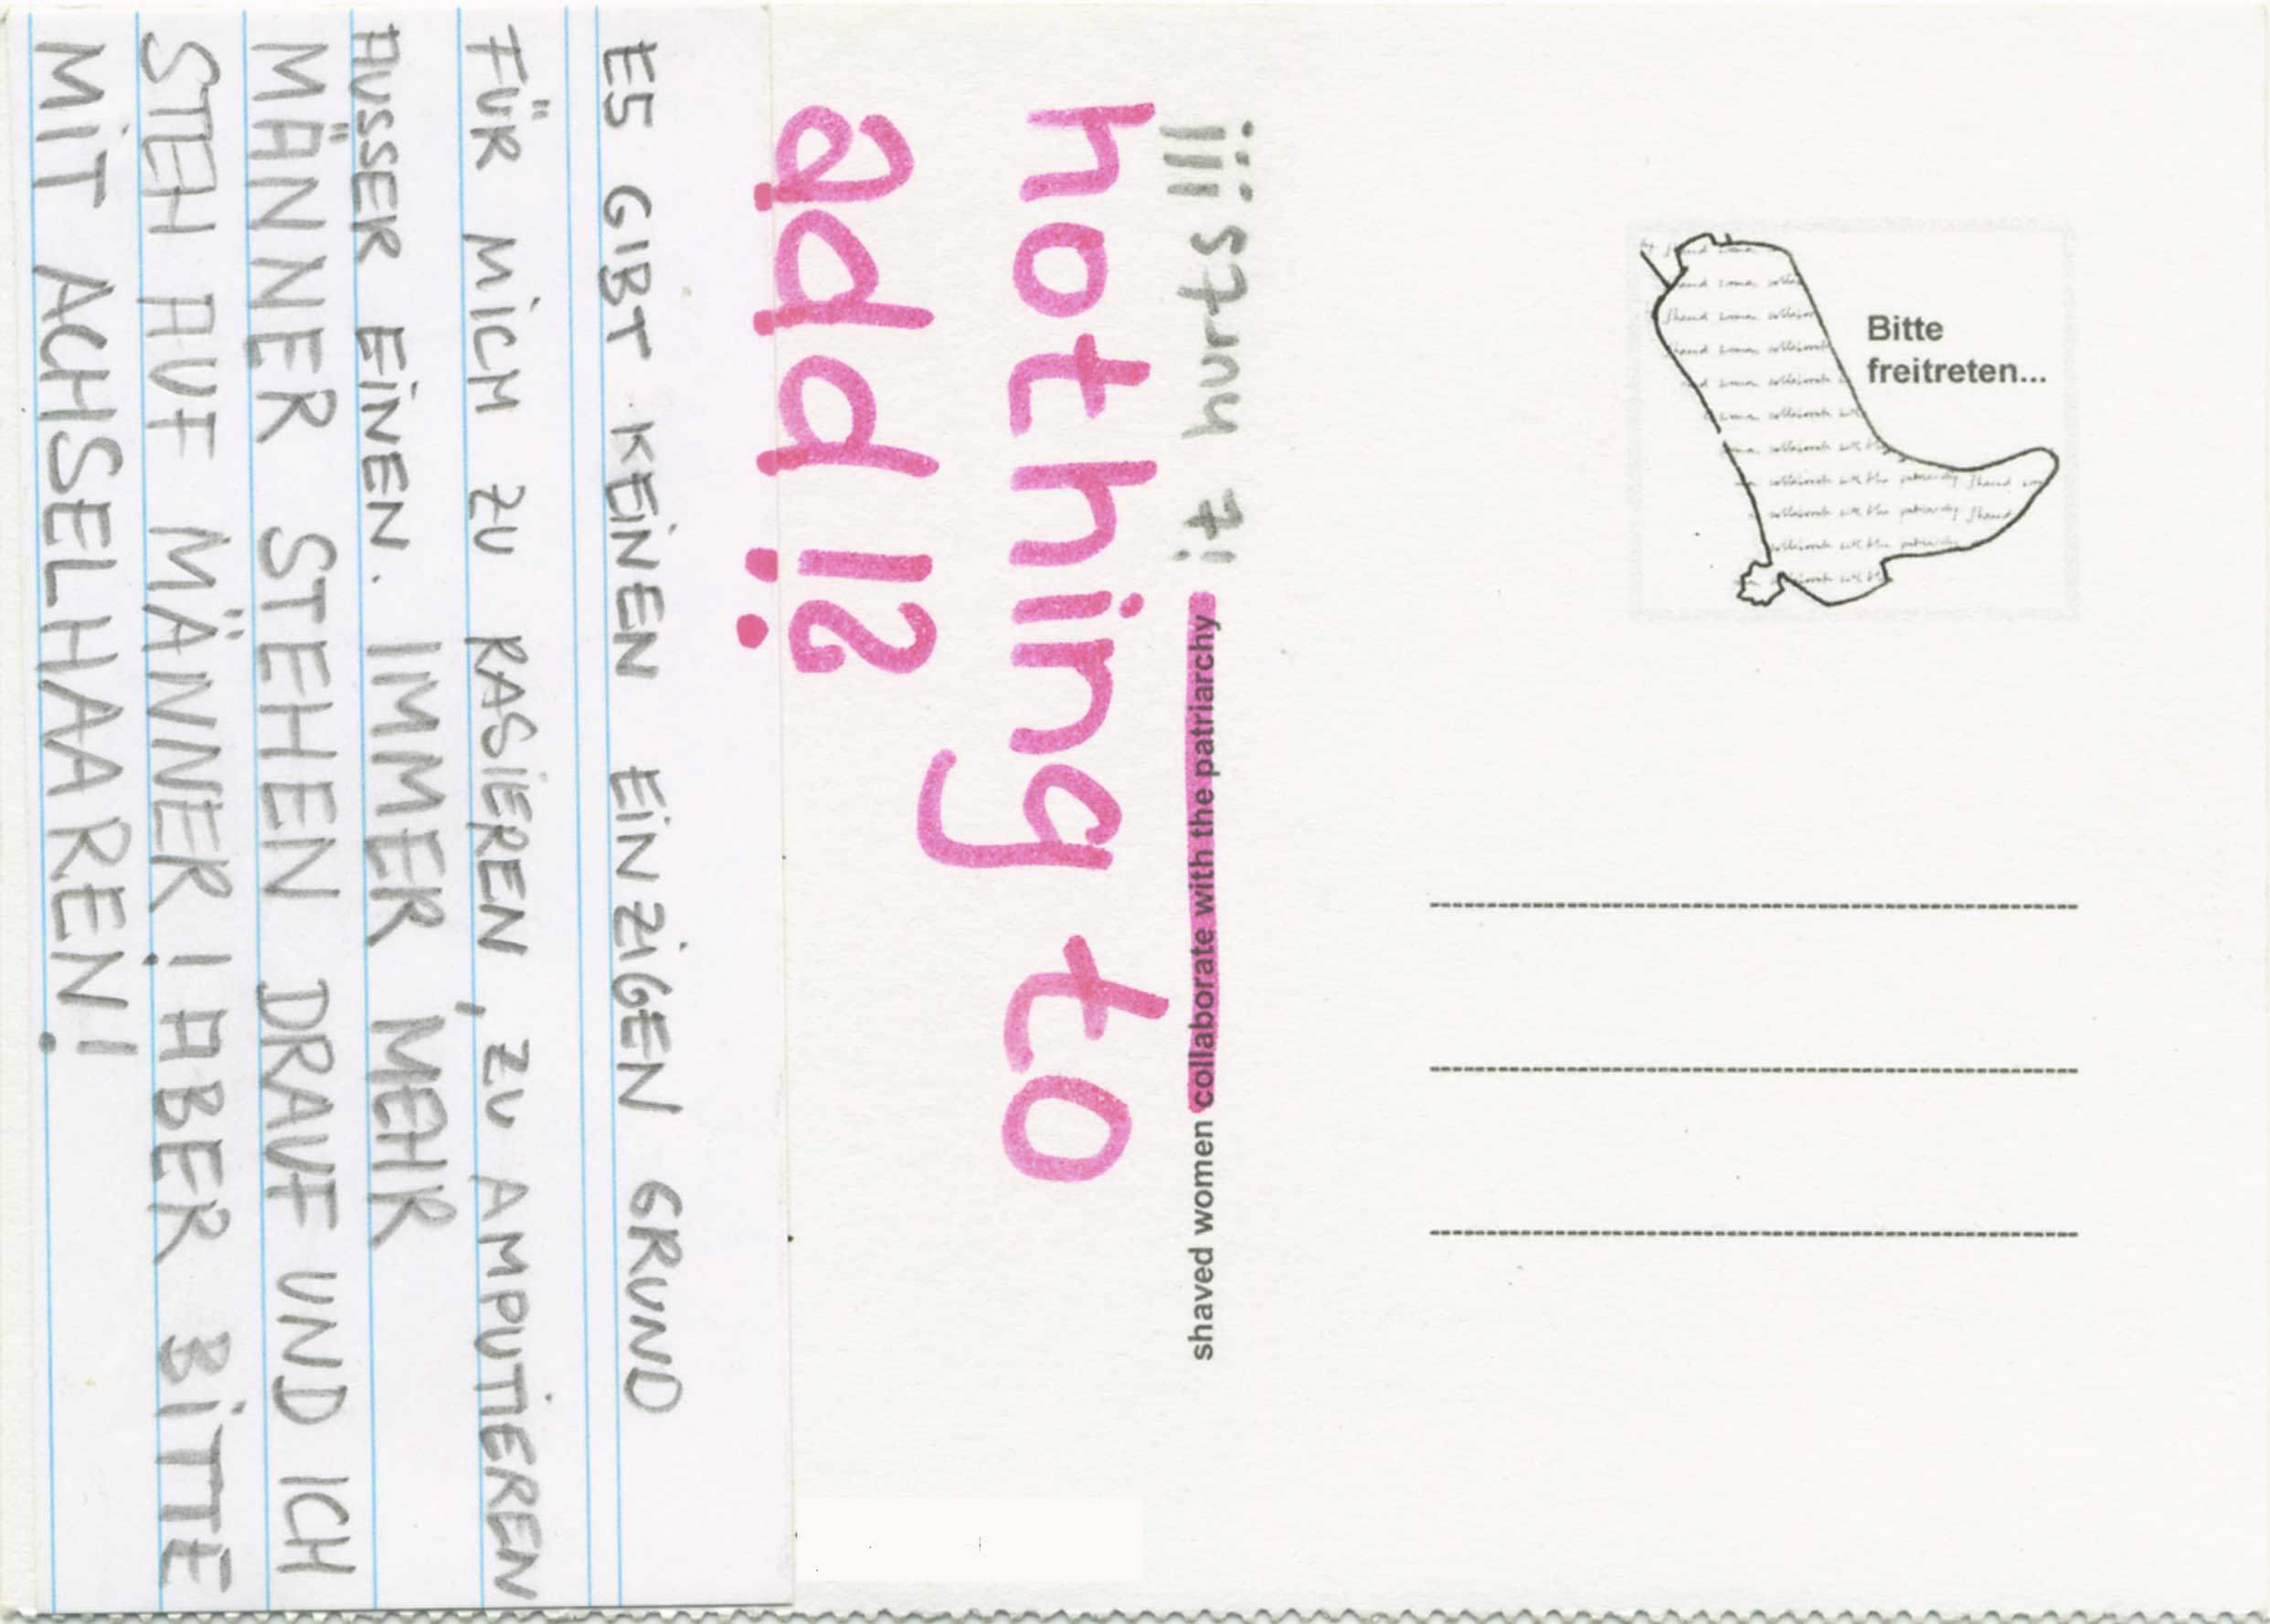 ES GIBT KEINEN EINZIGEN GRUND
FÜR MICH ZU RASIEREN, ZU AMPUTIEREN
AUSSER EINEN. IMMER MEHR
MÄNNER STEHEN DRAUF UND ICH
STEH AUF MÄNNER! ABER BITTE
MIT ACHSELHAAREN!
hothing to
add!?
shaved women collaborate with the patriarchy it hurts!!!
Bitte
freitreten...